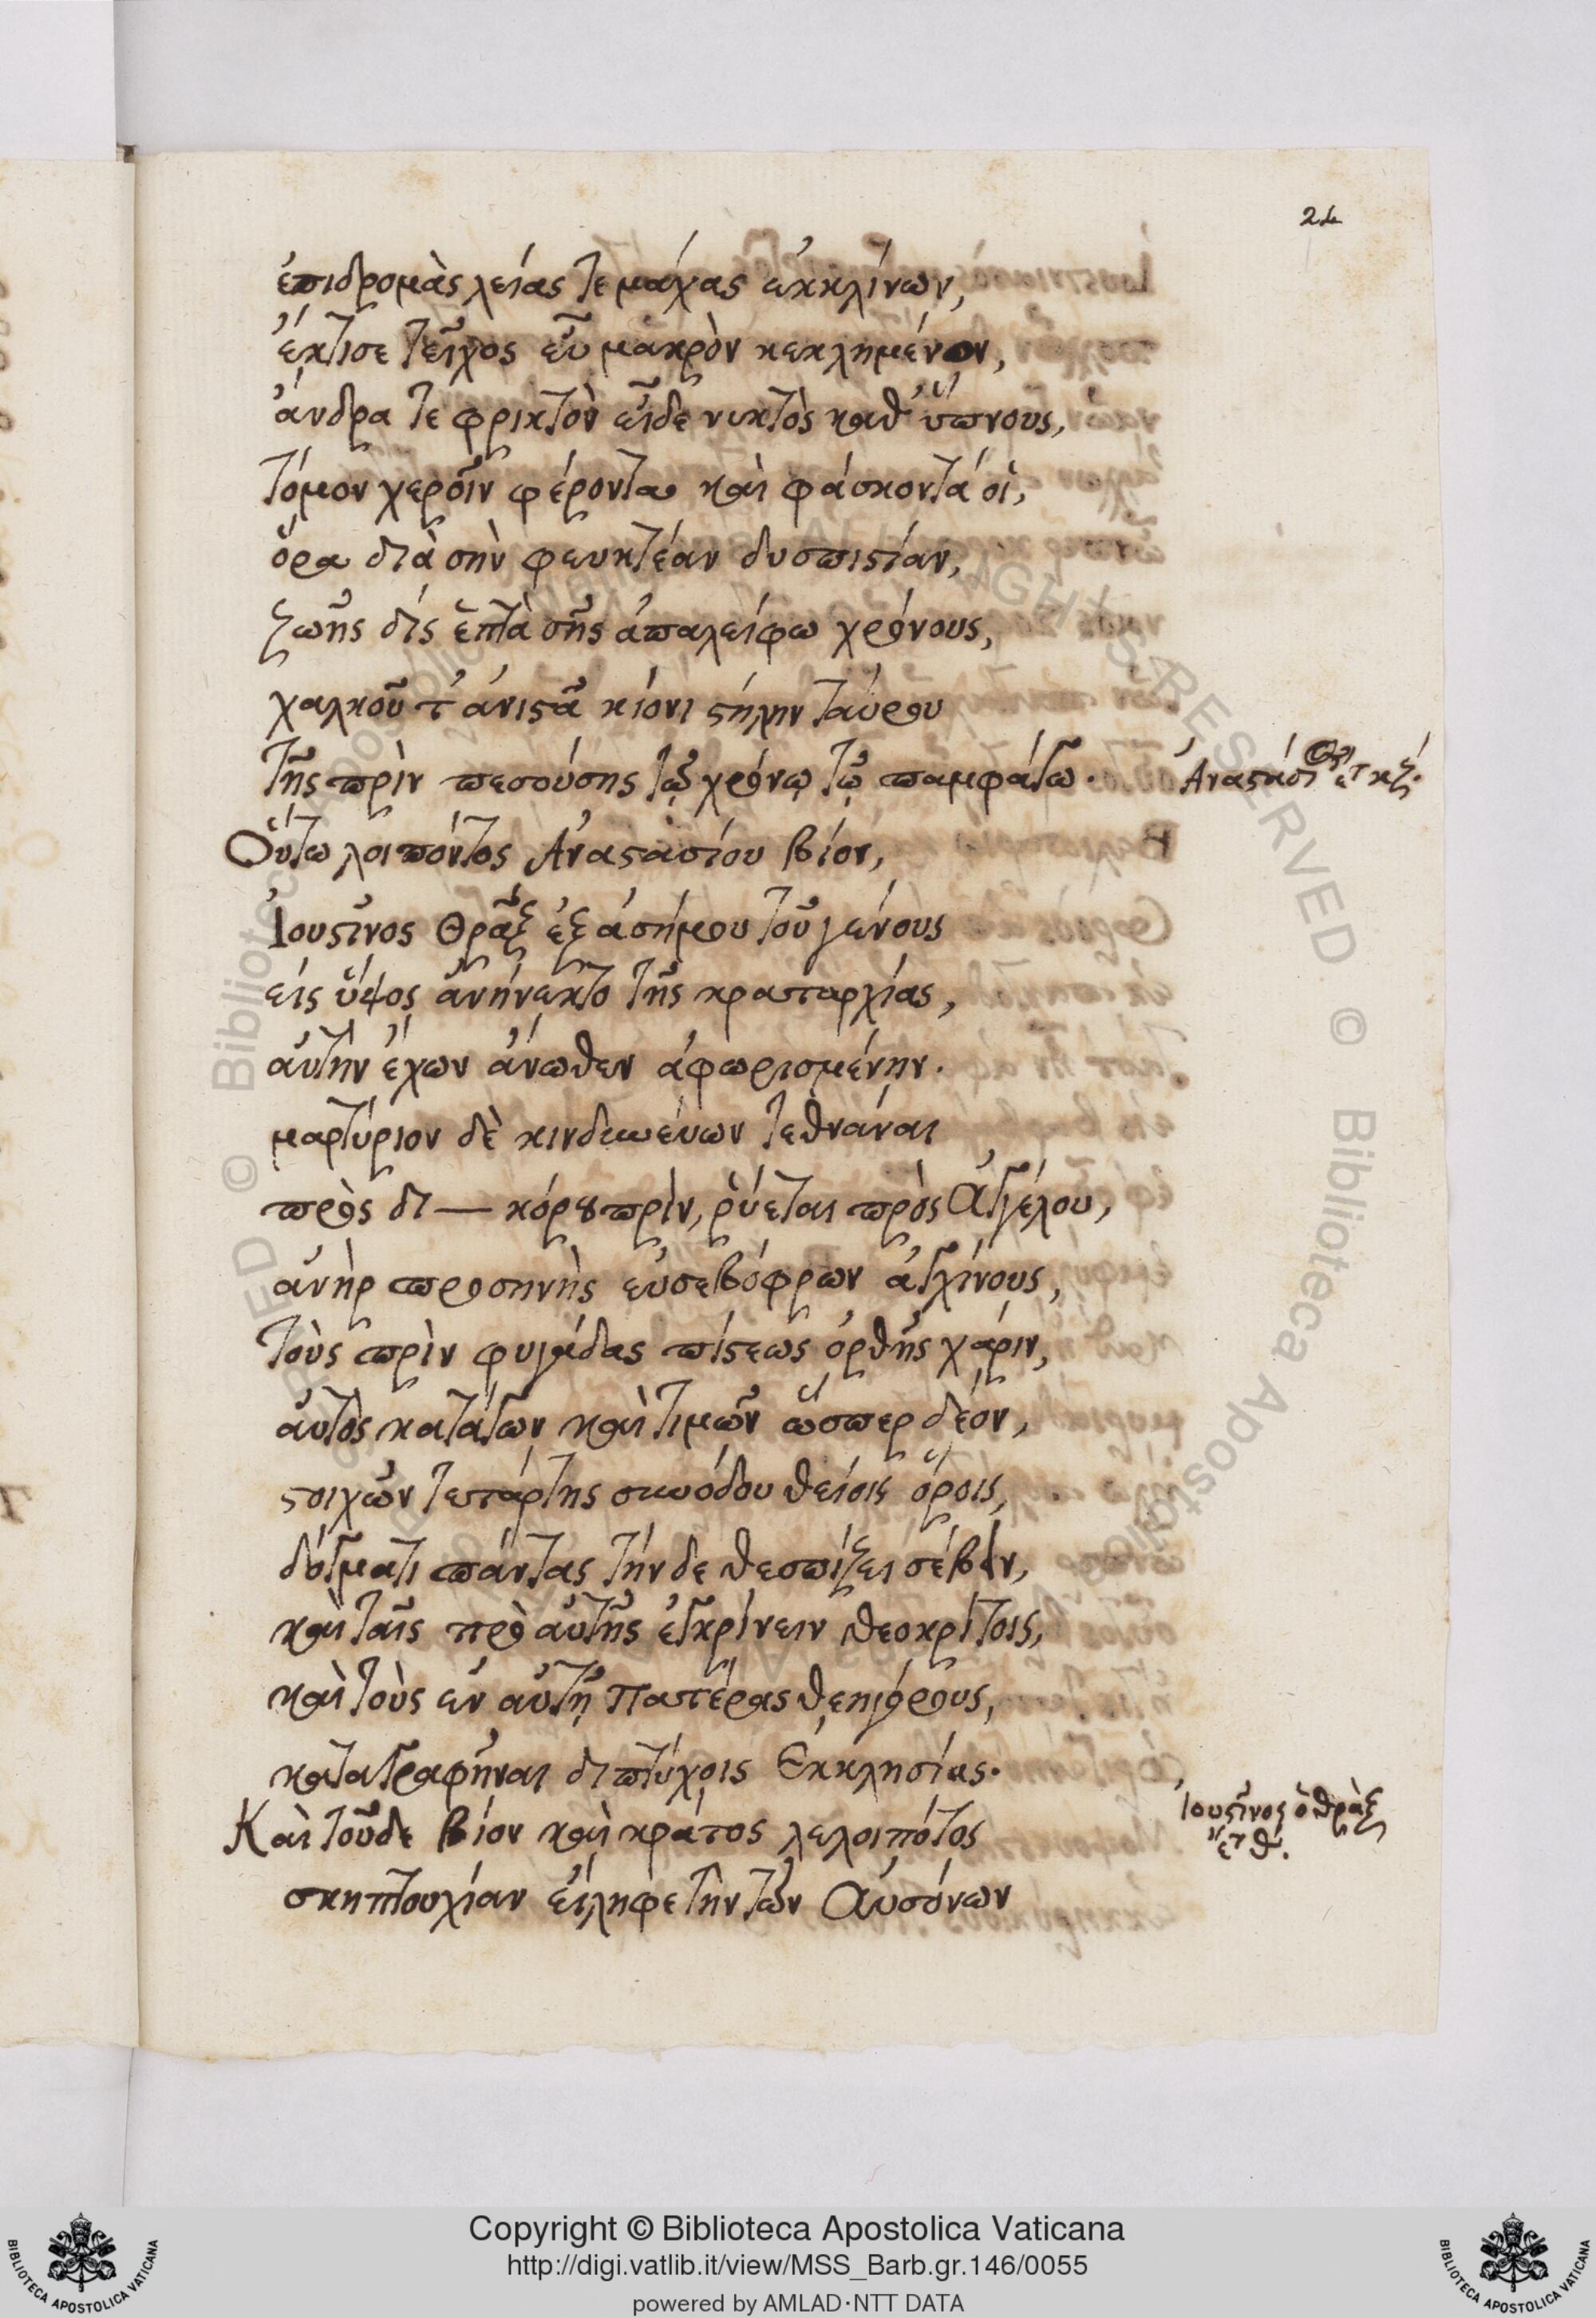 24
ἐπιδρομὰς λείας τε μάχας ἐκκλίνων,
ἔκτισε τεῖχος εὖ μακρὸν κεκλημένον,
ἄνδρα τε φρικτὸν εἶδε νυκτὸς καθ' ὕπνους,
τόμον χεροῖν φέροντα καὶ φάσκοντά οἱ,
ὅρα διὰ σὴν φευκτέαν δυσπιστίαν,
ζωῆς δὶς ἑπτὰ σῆς ἀπαλείφω χρόνους,
χαλκοῦ τ' ἀνιστᾶ κίονι στήλην ταύρου
τῆς πρὶν πεσούσης τῷ χρόνῳ τῷ παμφάγω.
Ἀναστάσιος ἔτ κζ.
Οὕτω λοιπόντος Ἀναστασίου βίον,
Ἰουστῖνος Θρᾷξ ἐξ ἀσήμου τοῦ γένους
εἰς ὕψος ἀνήνεκτο τῆς κραταρχίας,
αὐτὴν ἔχων ἄνωθεν ἀφωρισμένην.
μαρτύριον δὲ κινδυνεύων τεθνάναι
πρὸς δι — κόρου πρὶν, ῥύεται πρὸς Ἀγγέλου,
ἀνὴρ προσηνὴς εὐσεβόφρων ἀγχίνους,
τοὺς πρὶν φυγάδας πίστεως ὀρθῆς χάριν,
αὐτὸς κατάγων καὶ τιμῶν ὥσπερ δέον,
στοιχῶν τετάρτης συνόδου θείοις ὅροις,
δόγματι πάντας τήνδε θεσπίζει σέβειν,
καὶ ταῖς πρὸ αὐτῆς ἐγκρίνειν θεοκρίτοις,
καὶ τοὺς ἐν αὐτῇ Πατέρας θεηγόρους,
καταγραφῆναι διπτύχοις Ἐκκλησίας.
Ἰουστῖνος ὁ θρὰξ
ἔτ θ.
Καὶ τοῦδε βίον καὶ κράτος λελοιπότος
σκηπτουχίαν εἴληφε τὴν τῶν Αὐσόνων
© Biblioteca Apostolica Vaticana
Copyright © Biblioteca Apostolica Vaticana
http://digi.vatlib.it/view/MSS_Barb.gr.146/0055
powered by AMLAD·NTT DATA
BIBLIOTECA APOSTOLICA VATICANA
BIBLIOTECA APOSTOLICA VATICANA